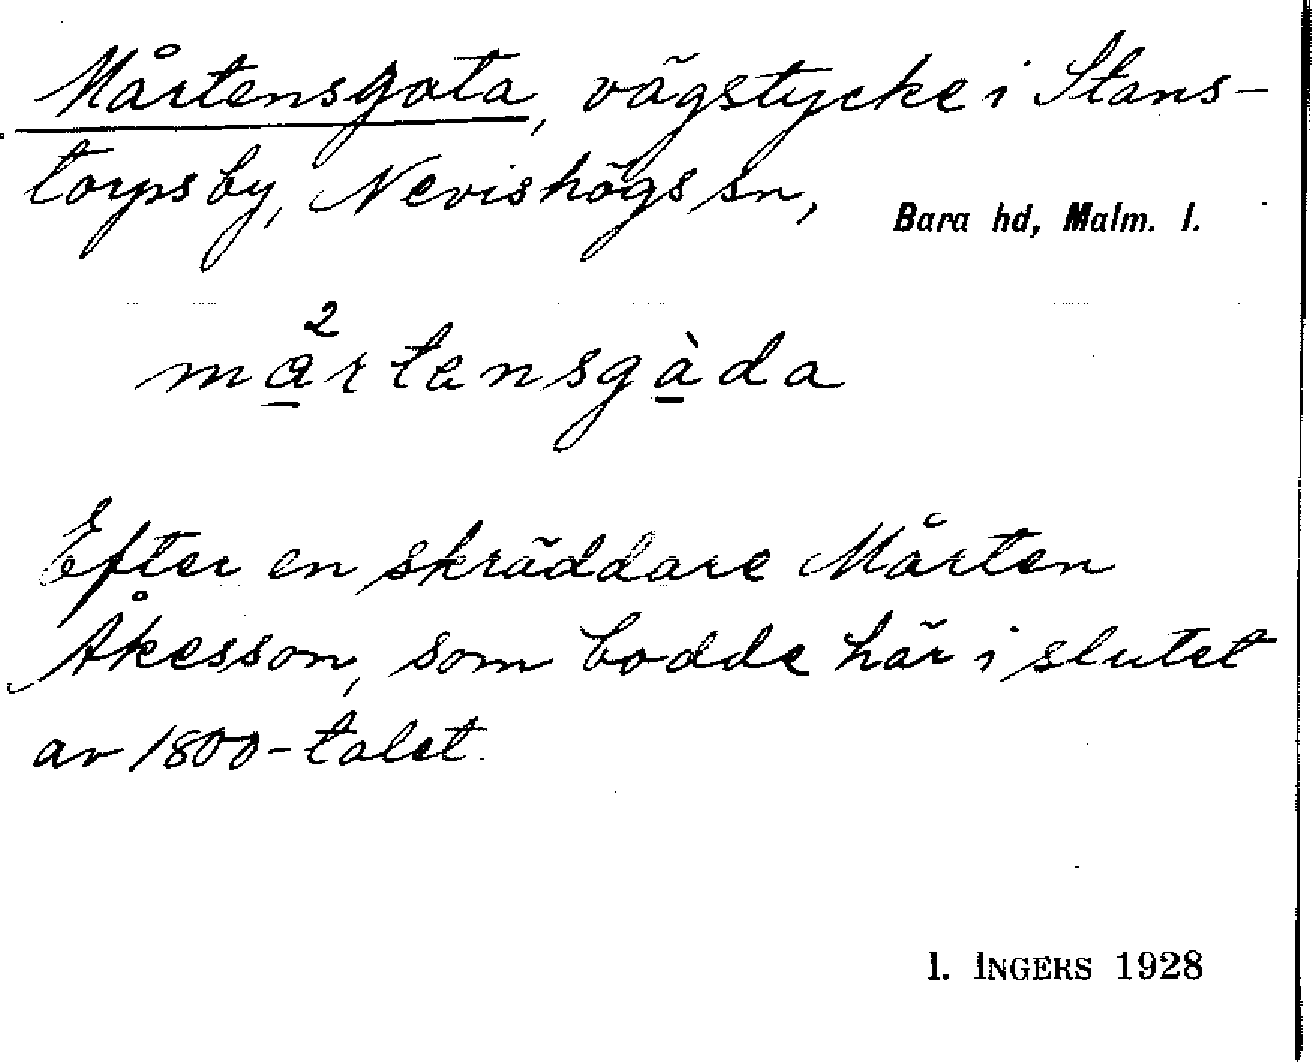 Mårtensgata, vägstycke i Stans-
torps by, Nevishögs sn, Bara hd, Malm. l.
mårtensgàda
Efter en skräddare Mårten
Åkesson, som bodde här i slutet
av 1800-talet.
I. INGERS 1928